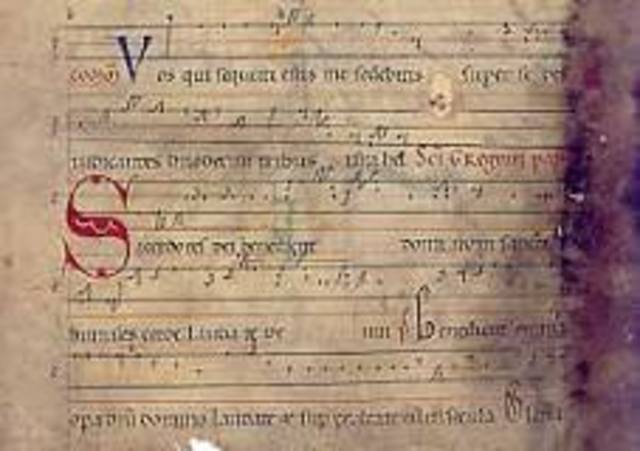 com̄ Vos qui secuti estis me sedebitis super se des
iudicantes duodecim tribus israhel Sci Gregorii pap
Sacerdotes dei benedicite dominum sancti
humiles corde laudate de um ps Benedicite omnia
opera dñi domino laudate & superexaltate eum in secula Gloria